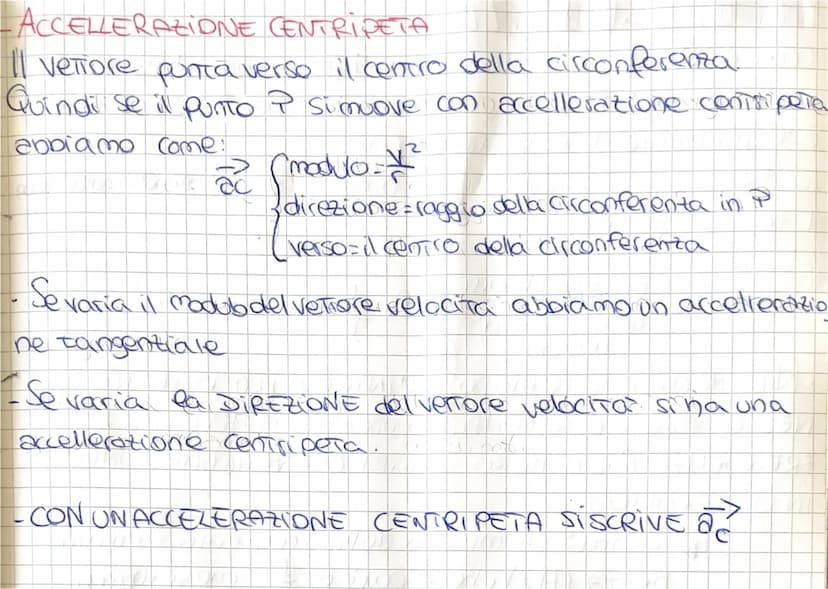 - ACCELLERAZIONE CENTRIPETA
Il vettore punta verso il centro della circonferenza.
Quindi se il punto P si muove con accellerazione centripeta
abbiamo come:
ac→ { modulo = v²/r
direzione = raggio della circonferenza in P
verso = il centro della circonferenza
- Se varia il modulo del vettore velocità abbiamo un accellerazio
ne tangenziale
- Se varia la DIREZIONE del vettore velocità si ha una
accellerazione centripeta.
- CON UN ACCELERAZIONE CENTRIPETA SI SCRIVE ac→